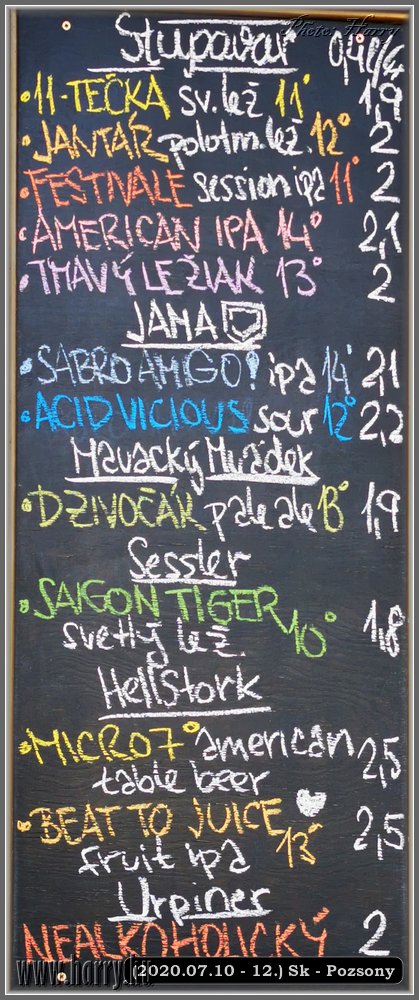 Photo: Harry
Stupavar 0,4l/€
• 11-TEČKA sv. lež 11° 1,9
• JANTÁR polotm. lež. 12° 2
• FESTIVALE session ipa 11° 2
• AMERICAN IPA 14° 2,1
• TMAVÝ LEŽIAK 13° 2
JAMA
• SABRO AMIGO! ipa 14° 2,1
• ACID VICIOUS sour 12° 2,2
Mazacký Mládek
• DZIVOČÁK pale ale 13° 1,9
Sessler
• SAIGON TIGER 10° 1,8
svetlý lež.
HellStork
• MICRO 7° american 2,5
table beer
• BEAT TO JUICE 13° 2,5
fruit ipa
Urpiner
NEALKOHOLICKÝ 2
www.horry.hu
(2020.07.10 - 12.) Sk - Pozsony